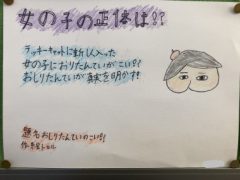 女の子の正体は!?
ラッキーキャットに新しく入った
女の子におしりたんていがこい!?
おしりたんていが真実を明かす!
題名おしりたんていのこい!?
作・絵